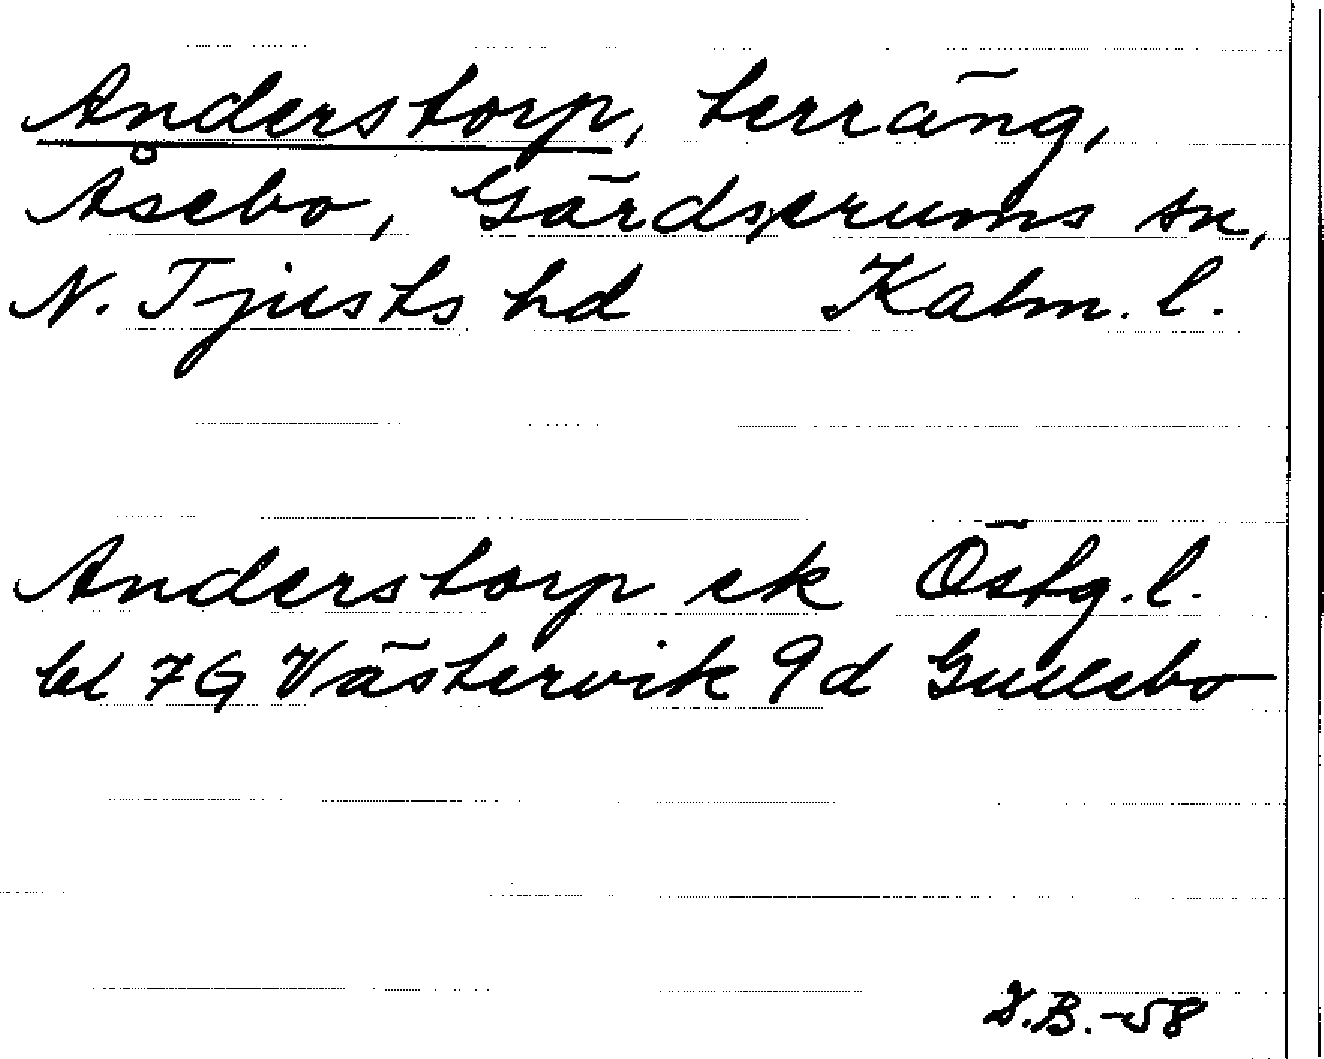 Anderstorp, terräng,
Åsebo, Gärdserums sn,
N. Tjusts hd Kalm. l.
Anderstorp ek Östg. l.
bl 7G Västervik 9d Gullebo
V.B.-58